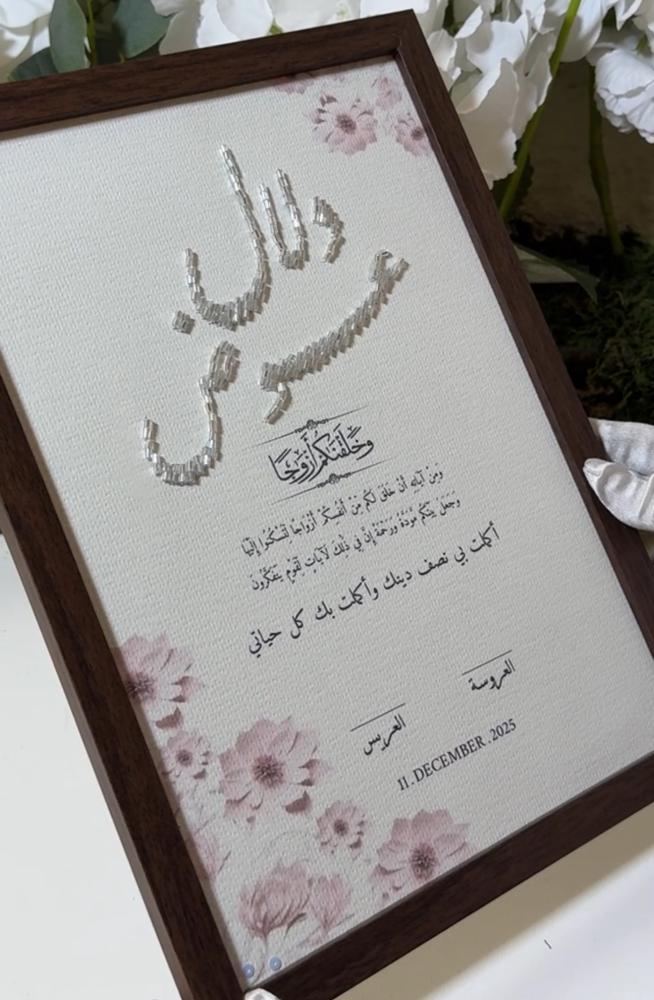 دلال
عوض
وَخَلَقْنَاكُمْ أَزْوَاجًا
وَمِنْ آيَاتِهِ أَنْ خَلَقَ لَكُم مِّنْ أَنفُسِكُمْ أَزْوَاجًا لِّتَسْكُنُوا إِلَيْهَا
وَجَعَلَ بَيْنَكُم مَّوَدَّةً وَرَحْمَةً إِنَّ فِي ذَٰلِكَ لَآيَاتٍ لِّقَوْمٍ يَتَفَكَّرُونَ
أكملت بي نصف دينك وأكملت بك كل حياتي
العروسة
العريس
11.DECEMBER.2025